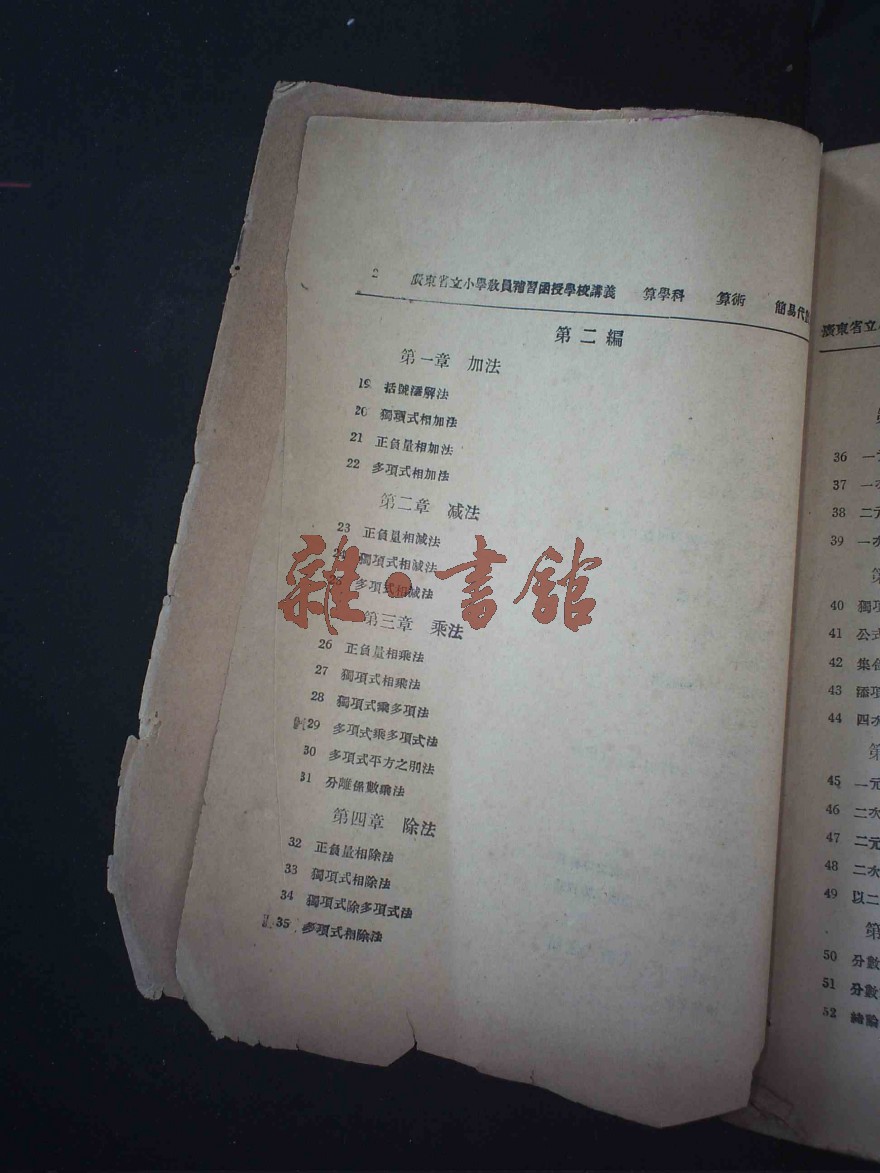 2 廣東省立小學敎員補習函授學校講義 算學科 算術 簡易代
第二編
第一章 加法
19 括號解法
20 獨項式相加法
21 正負量相加法
22 多項式相加法
第二章 减法
23 正負量相减法
24 獨項式相减法
25 多項式相减法
第三章 乘法
26 正負量相乘法
27 獨項式相乘法
28 獨項式乘多項法
29 多項式乘多項式法
30 多項式平方之則法
31 分離係數乘法
第四章 除法
32 正負量相除法
33 獨項式相除法
34 獨項式除多項式法
35 多項式相除法
雜·書館
廣東省立
36 一
37 一
38 二元
39 一次
第
40 獨項
41 公式
42 集
43 添項
44 四次
第
45 一元
46 二次
47 二元
48 二次
49 以二
第
50 分數
51 分數
52 論